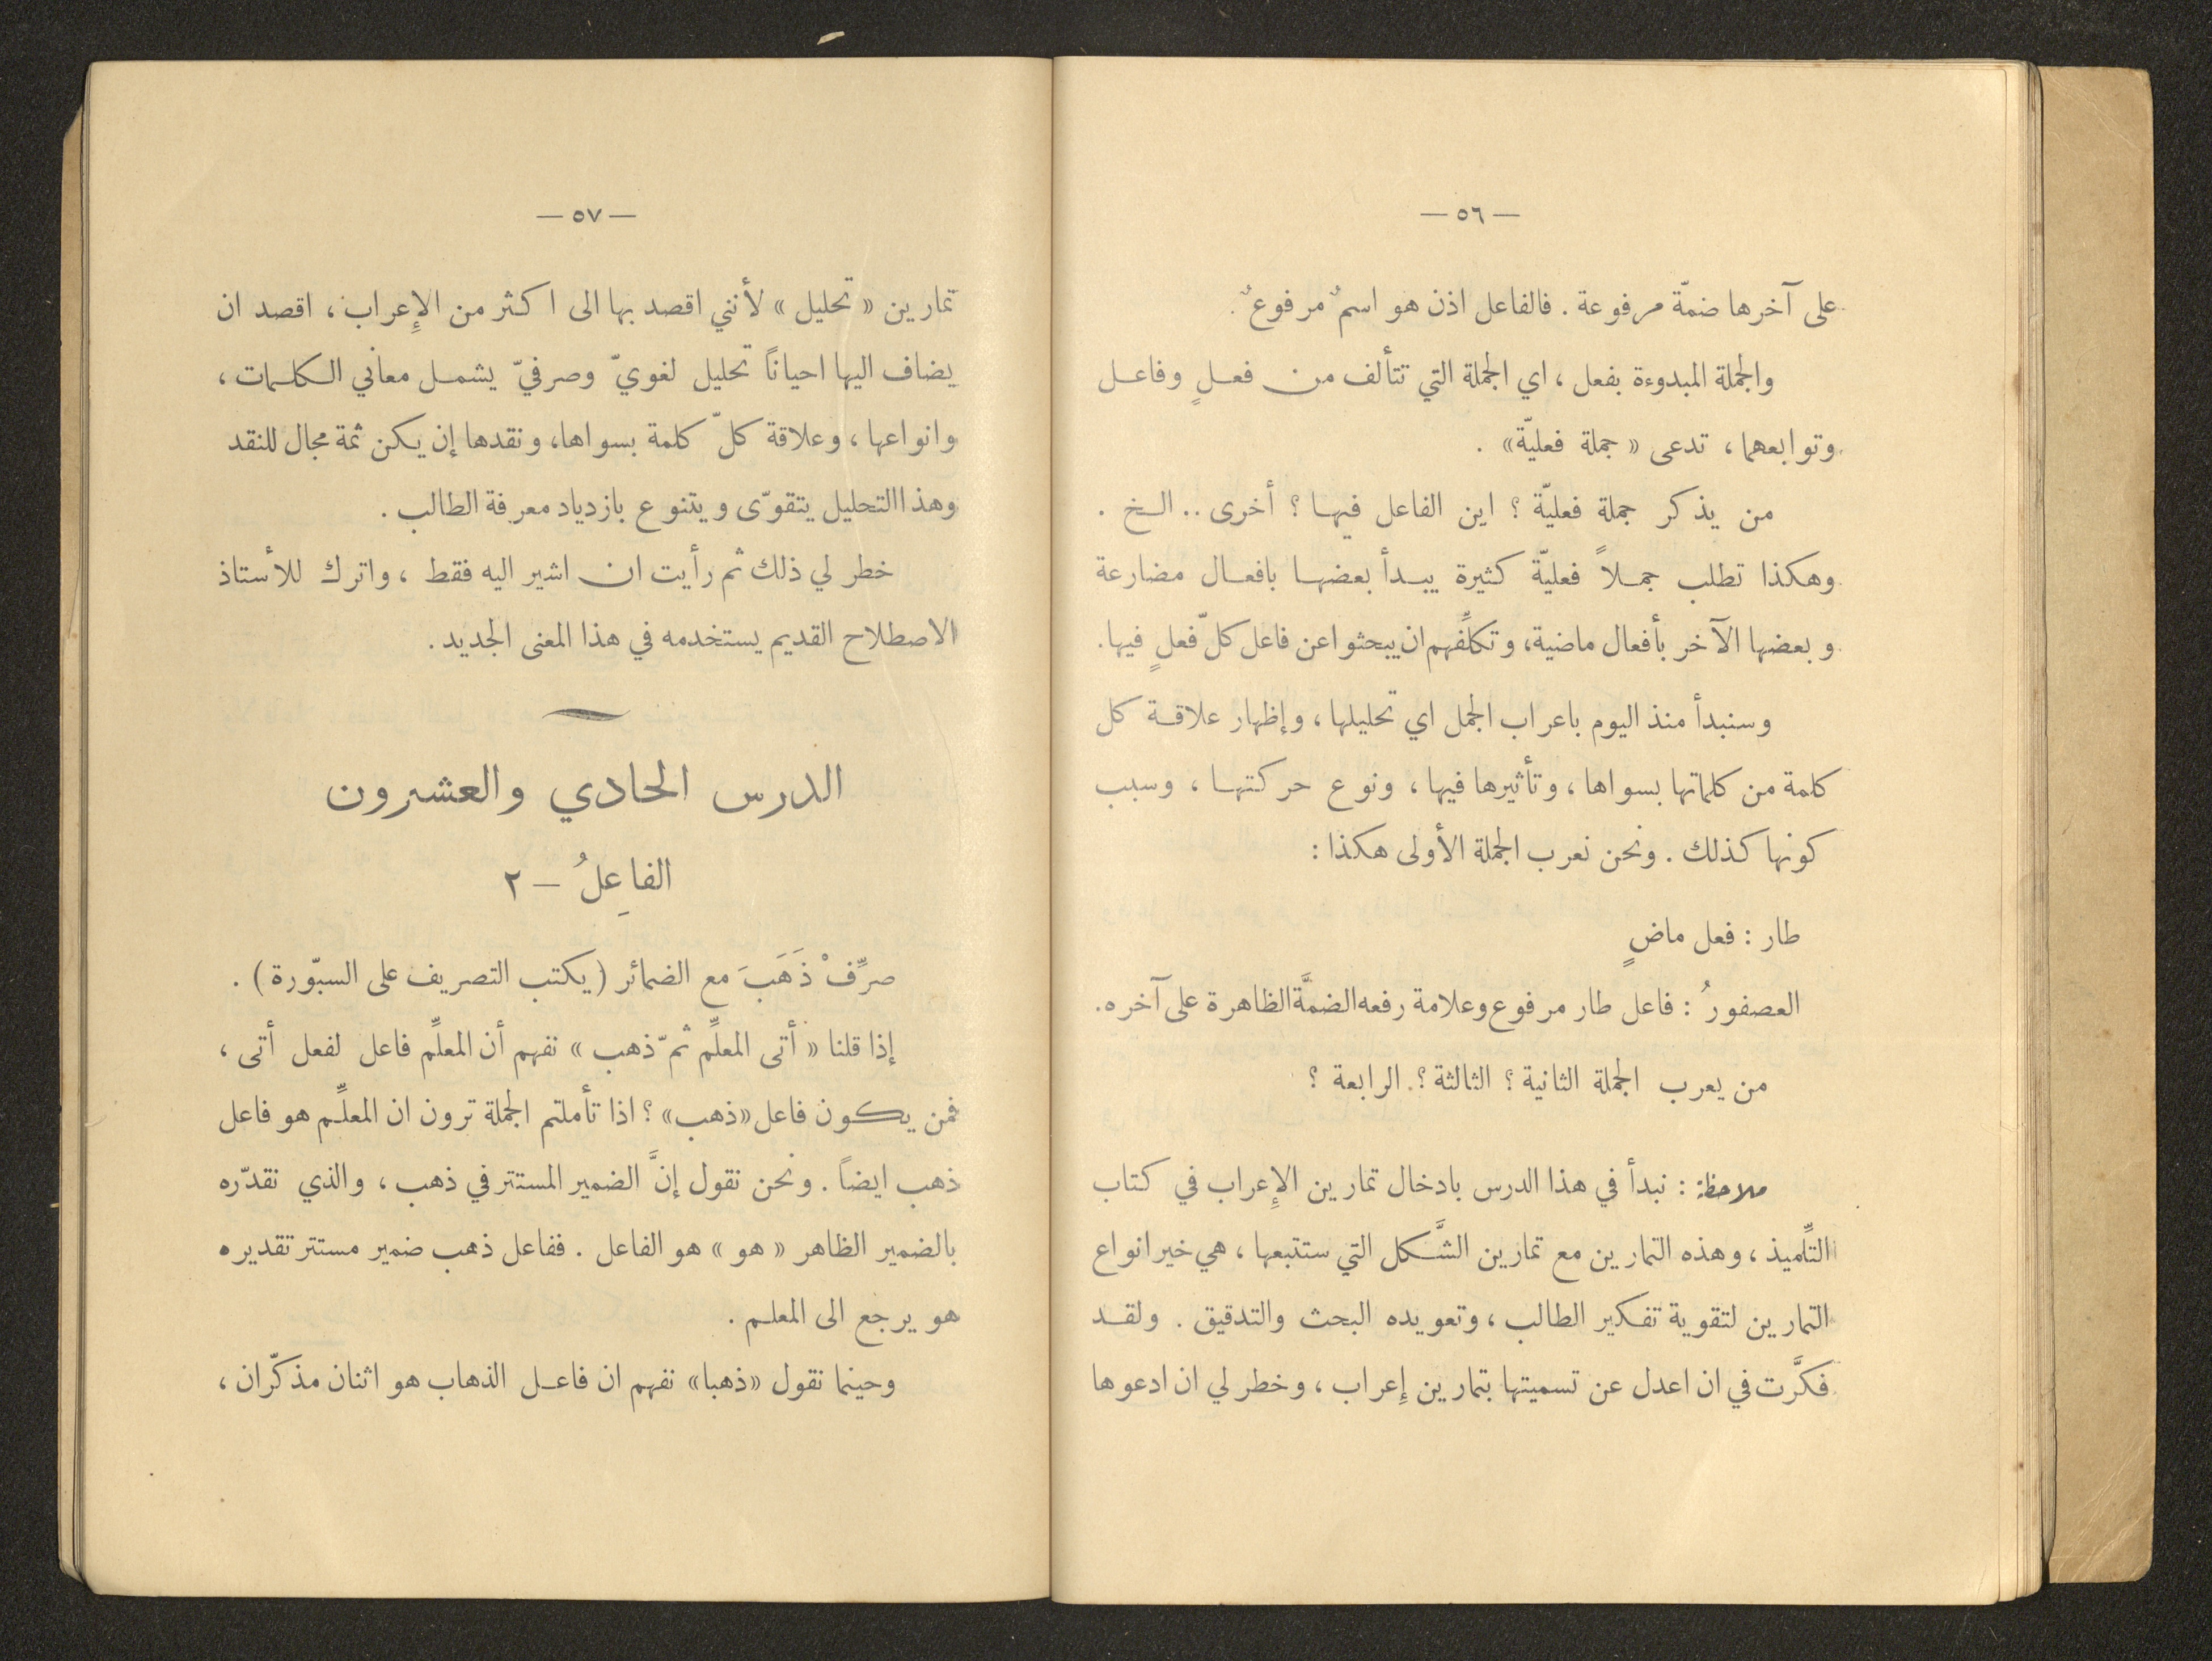 — ٥٦ —
على آخرها ضمّة مرفوعة . فالفاعل اذن هو اسمٌ مرفوعٌ .
والجملة المبدوءة بفعل ، اي الجملة التي تتألف من فعلٍ وفاعل
وتوابعهما ، تدعى « جملة فعليّة» .
من يذكر جملة فعليّة ؟ اين الفاعل فيها ؟ أخرى .. الخ .
وهكذا تطلب جملاً فعليّة كثيرة يبدأ بعضها بافعال مضارعة
وبعضها الآخر بأفعال ماضية، وتكلِّفهم ان يبحثوا عن فاعل كلّ فعلٍ فيها.
وسنبدأ منذ اليوم باعراب الجمل اي تحليلها ، وإظهار علاقة كل
كلمة من كلماتها بسواها ، وتأثيرها فيها ، ونوع حركتها ، وسبب
كونها كذلك . ونحن نعرب الجملة الأولى هكذا :
طار : فعل ماضٍ
العصفورُ : فاعل طار مرفوع وعلامة رفعه الضمَّة الظاهرة على آخره.
من يعرب الجملة الثانية ؟ الثالثة ؟ الرابعة ؟
ملاحظة : نبدأ في هذا الدرس بادخال تمارين الإِعراب في كتاب
التِّلميذ ، وهذه التمارين مع تمارين الشَّكل التي ستتبعها ، هي خير انواع
التمارين لتقوية تفكير الطالب ، وتعويده البحث والتدقيق . ولقد
فكَّرت في ان اعدل عن تسميتها بتمارين إِعراب ، وخطر لي ان ادعوها
— ٥٧ —
تمارين « تحليل » لأنني اقصد بها الى اكثر من الإِعراب ، اقصد ان
يضاف اليها احياناً تحليل لغويّ وصرفيّ يشمل معاني الكلمات ،
وانواعها ، وعلاقة كلّ كلمة بسواها، ونقدها إن يكن ثمة مجال للنقد
وهذا التحليل يتقوّى ويتنوع بازدياد معرفة الطالب .
خطر لي ذلك ثم رأيت ان اشير اليه فقط ، واترك للأستاذ
الاصطلاح القديم يستخدمه في هذا المعنى الجديد .
الدرس الحادي والعشرون
الفاعِلُ — ٢
صرِّفْ ذَهَبَ مع الضمائر (يكتب التصريف على السبّورة) .
إذا قلنا « أتى المعلِّم ثمّ ذهب » نفهم أن المعلِّم فاعل لفعل أتى ،
فمن يكون فاعل «ذهب» ؟ اذا تأملتم الجملة ترون ان المعلِّم هو فاعل
ذهب ايضاً . ونحن نقول إنَّ الضمير المستتر في ذهب ، والذي نقدّره
بالضمير الظاهر « هو » هو الفاعل . ففاعل ذهب ضمير مستتر تقديره
هو يرجع الى المعلم .
وحينما نقول «ذهبا» نفهم ان فاعل الذهاب هو اثنان مذكّران ،